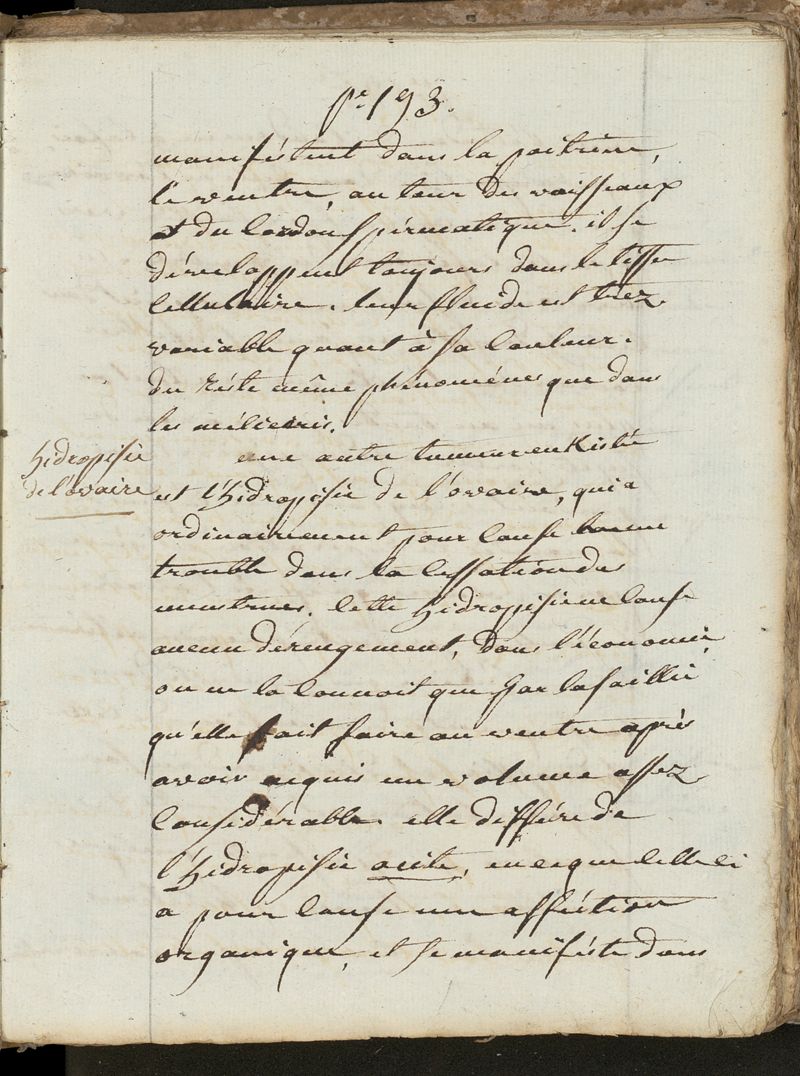 pe 193.
manifestent dans la poitrine,
le ventre, autour des vaisseaux
et du Cordon spérmatique. il se
dévelloppent toujours dans le tissu
Cellulaire. leur fluide est trez
variable quant à sa Couleur.
du réste même phénoménes que dans
les méliceris.
une autre tumeur en Kistée
Hidropisie
de l'ovaire
est l'hidropisie de l'ovaire, qui a
ordinairement pour Cause
trouble dans la Cessation des
menstrues. Cette hidropisie ne Cause
aucun dérengement, dans l'économie,
on ne la Connoit que par la saillie
qu'elle fait faire au ventre après
avoir aquis un volume assez
Considérable. elle différe de
l'hidropisie acite, en ce que Celle Ci
a pour Cause une afféction
organique, et se manifeste dans